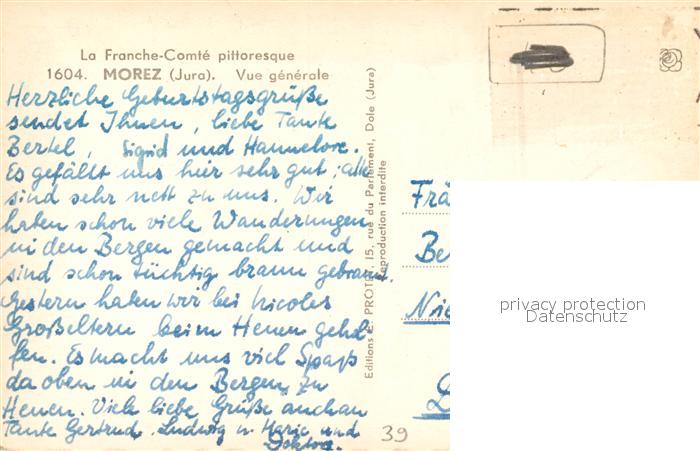 La Franche-Comté pittoresque
1604. MOREZ (Jura). Vue générale
Herzliche Geburtstagsgrüße
sendet Ihnen, liebe Tante
Bertel, Sigrid und Hannelore.
Es gefällt uns hier sehr gut; alle
sind sehr nett zu uns. Wir
haben schon viele Wanderungen
in den Bergen gemacht und
sind schon tüchtig braun gebrannt.
Gestern haben wir bei Nicoles
Großeltern beim Heuen gehol-
fen. Es macht uns viel Spaß
da oben in den Bergen zu
Heuen. Viele liebe Grüße auch an
Tante Gertrud, Ludwig u. Marie und
Editions E. PROTET, 15, rue du Parlement, Dole (Jura)
Reproduction interdite
Frä
Be
Nie
39
privacy protection
Datenschutz